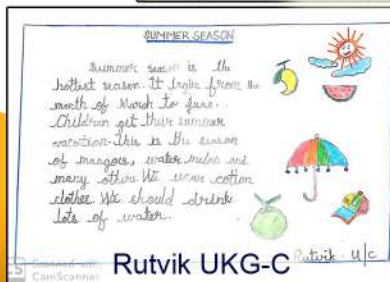 SUMMER SEASON
Summer season is the
hottest season. It begin from the
month of March to June.
Children get their summer
vacation. This is the season
of mangoes, water melon and
many others. We wear cotton
clothes. We should drink
lots of water.
Rutvik - U/C
Scanned with
CamScanner
Rutvik UKG-C